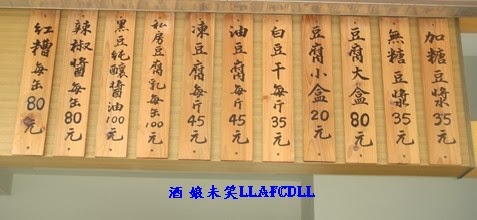 加糖豆漿35元
無糖豆漿35元
豆腐大盒80元
豆腐小盒20元
白豆干每斤35元
油豆腐每斤45元
凍豆腐每斤45元
私房豆腐乳每缶100元
黑豆純釀醬油100元
辣椒醬每缶80元
紅糟每缶80元
酒娘未笑LLAFCDLL